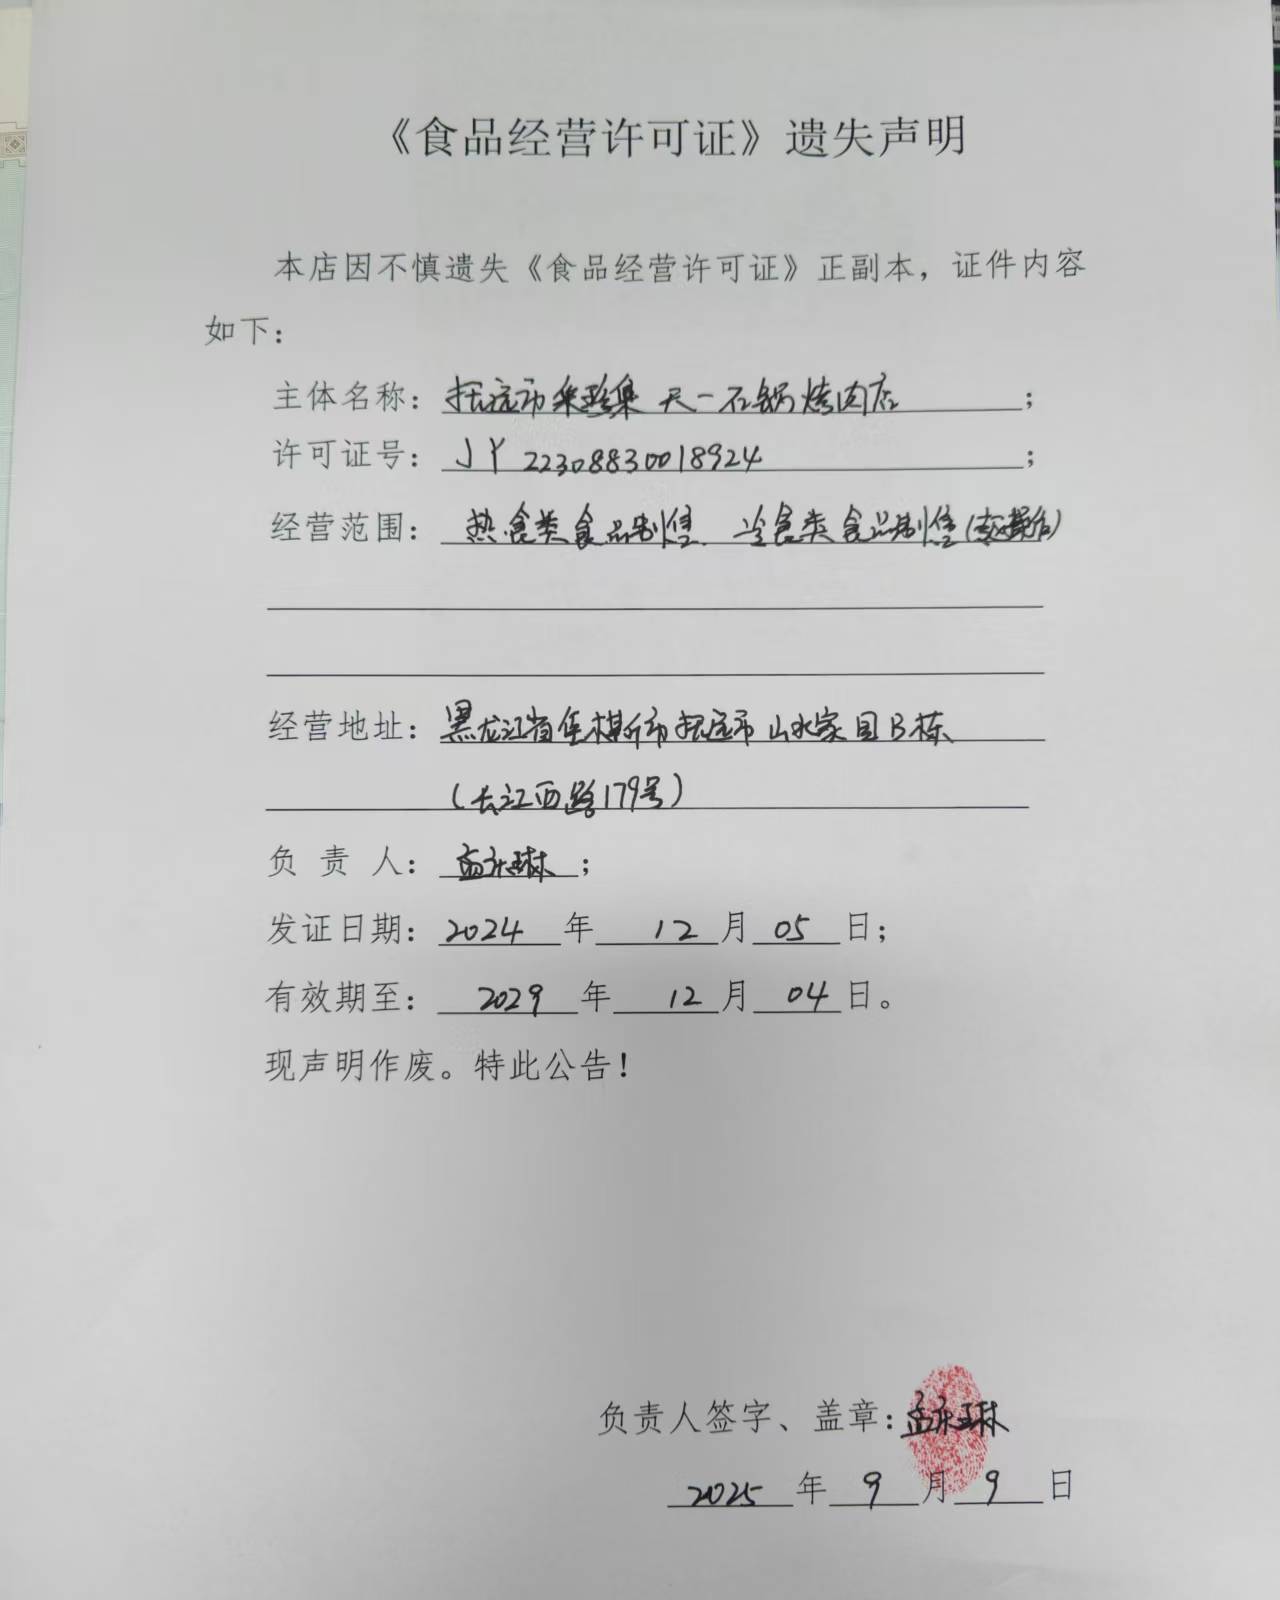 《食品经营许可证》遗失声明
本店因不慎遗失《食品经营许可证》正副本，证件内容
如下：
主体名称：抚远市集珍集天一石锅烤肉店；
许可证号：JY22308830018924；
经营范围：热食类食品制售、冷食类食品制售(
经营地址：黑龙江省佳木斯市抚远市山水家园B栋
(长江西路179号)
负 责 人：孟永琳；
发证日期：2024年12月05日；
有效期至：2029年12月04日。
现声明作废。特此公告！
负责人签字、盖章：孟永琳
2025年9月9日